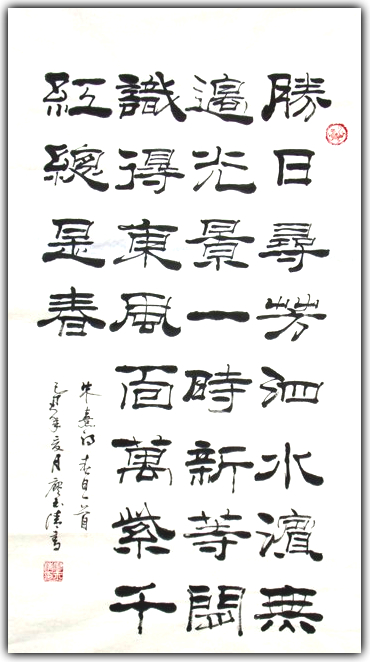 勝日尋芳泗水濱無
邊光景一時新等閒
識得東風面萬紫千
紅總是春
朱熹詩春日一首
年夏月廖書